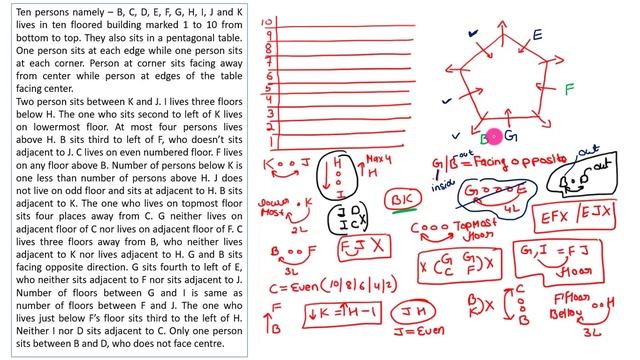 Ten persons namely – B, C, D, E, F, G, H, I, J and K
lives in ten floored building marked 1 to 10 from
bottom to top. They also sits in a pentagonal table.
One person sits at each edge while one person sits
at each corner. Person at corner sits facing away
from center while person at edges of the table
facing center.
Two person sits between K and J. I lives three floors
below H. The one who sits second to left of K lives
on lowermost floor. At most four persons lives
above H. B sits third to left of F, who doesn't sits
adjacent to J. C lives on even numbered floor. F lives
on any floor above B. Number of persons below K is
one less than number of persons above H. J does
not lives on odd floor and sits at adjacent to H. B sits
adjacent to K. The one who lives on topmost floor
sits four places away from C. G neither lives on
adjacent floor of C nor lives on adjacent floor of F. C
lives three floors away from B, who neither lives
adjacent to K nor lives adjacent to H. G and B sits
facing opposite direction. G sits fourth to left of E,
who neither sits adjacent to F nor sits adjacent to J.
Number of floors between G and I is same as
number of floors between F and J. The one who
lives just below F's floor sits third to the left of H.
Neither I nor D sits adjacent to C. Only one person
sits between B and D, who does not face centre.
10
9
8
7
6
5
4
3
2
1
E
F
B G
K o o J
H
o
o
I
Max 4
H
G/B out = Facing opposite
inside
out
out
B o D
Lower Most o K
2L
J D
I C X
BK
G o o o E
4L
EFX / EJX
C o o o Topmost
Floor
B o o F
3L
F J X
X (G G
C F) X
G, I = F J
Floor
C = Even (10/8/6/4/2)
F
B
↓K = ↑H - 1
J H
J = Even
B
K) X
C
o
o
B
F Floor
Below o o H
3L